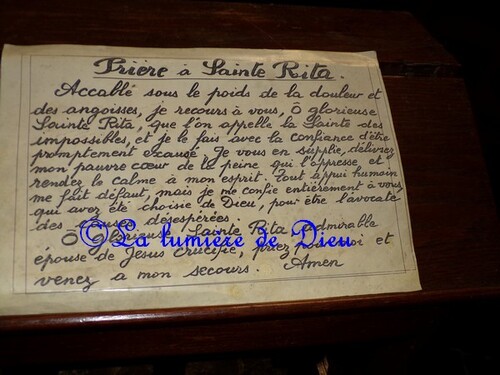 Prière à Sainte Rita.
Accablé sous le poids de la douleur et
des angoisses, je recours à vous, Ô glorieuse
Sainte Rita, que l'on appelle la Sainte des
impossibles, et je le fais avec la confiance d'être
promptement exaucé. Je vous en supplie, délivrez
mon pauvre cœur de la peine qui l'oppresse, et
rendez le calme à mon esprit. Tout appui humain
me fait défaut, mais je me confie entièrement à vous,
qui avez été choisie de Dieu, pour être l'avocate
des causes désespérées.
©La lumière de Dieu
Ô Glorieuse Sainte Rita Admirable
épouse de Jésus Crucifié, priez pour moi et
venez à mon secours. Amen